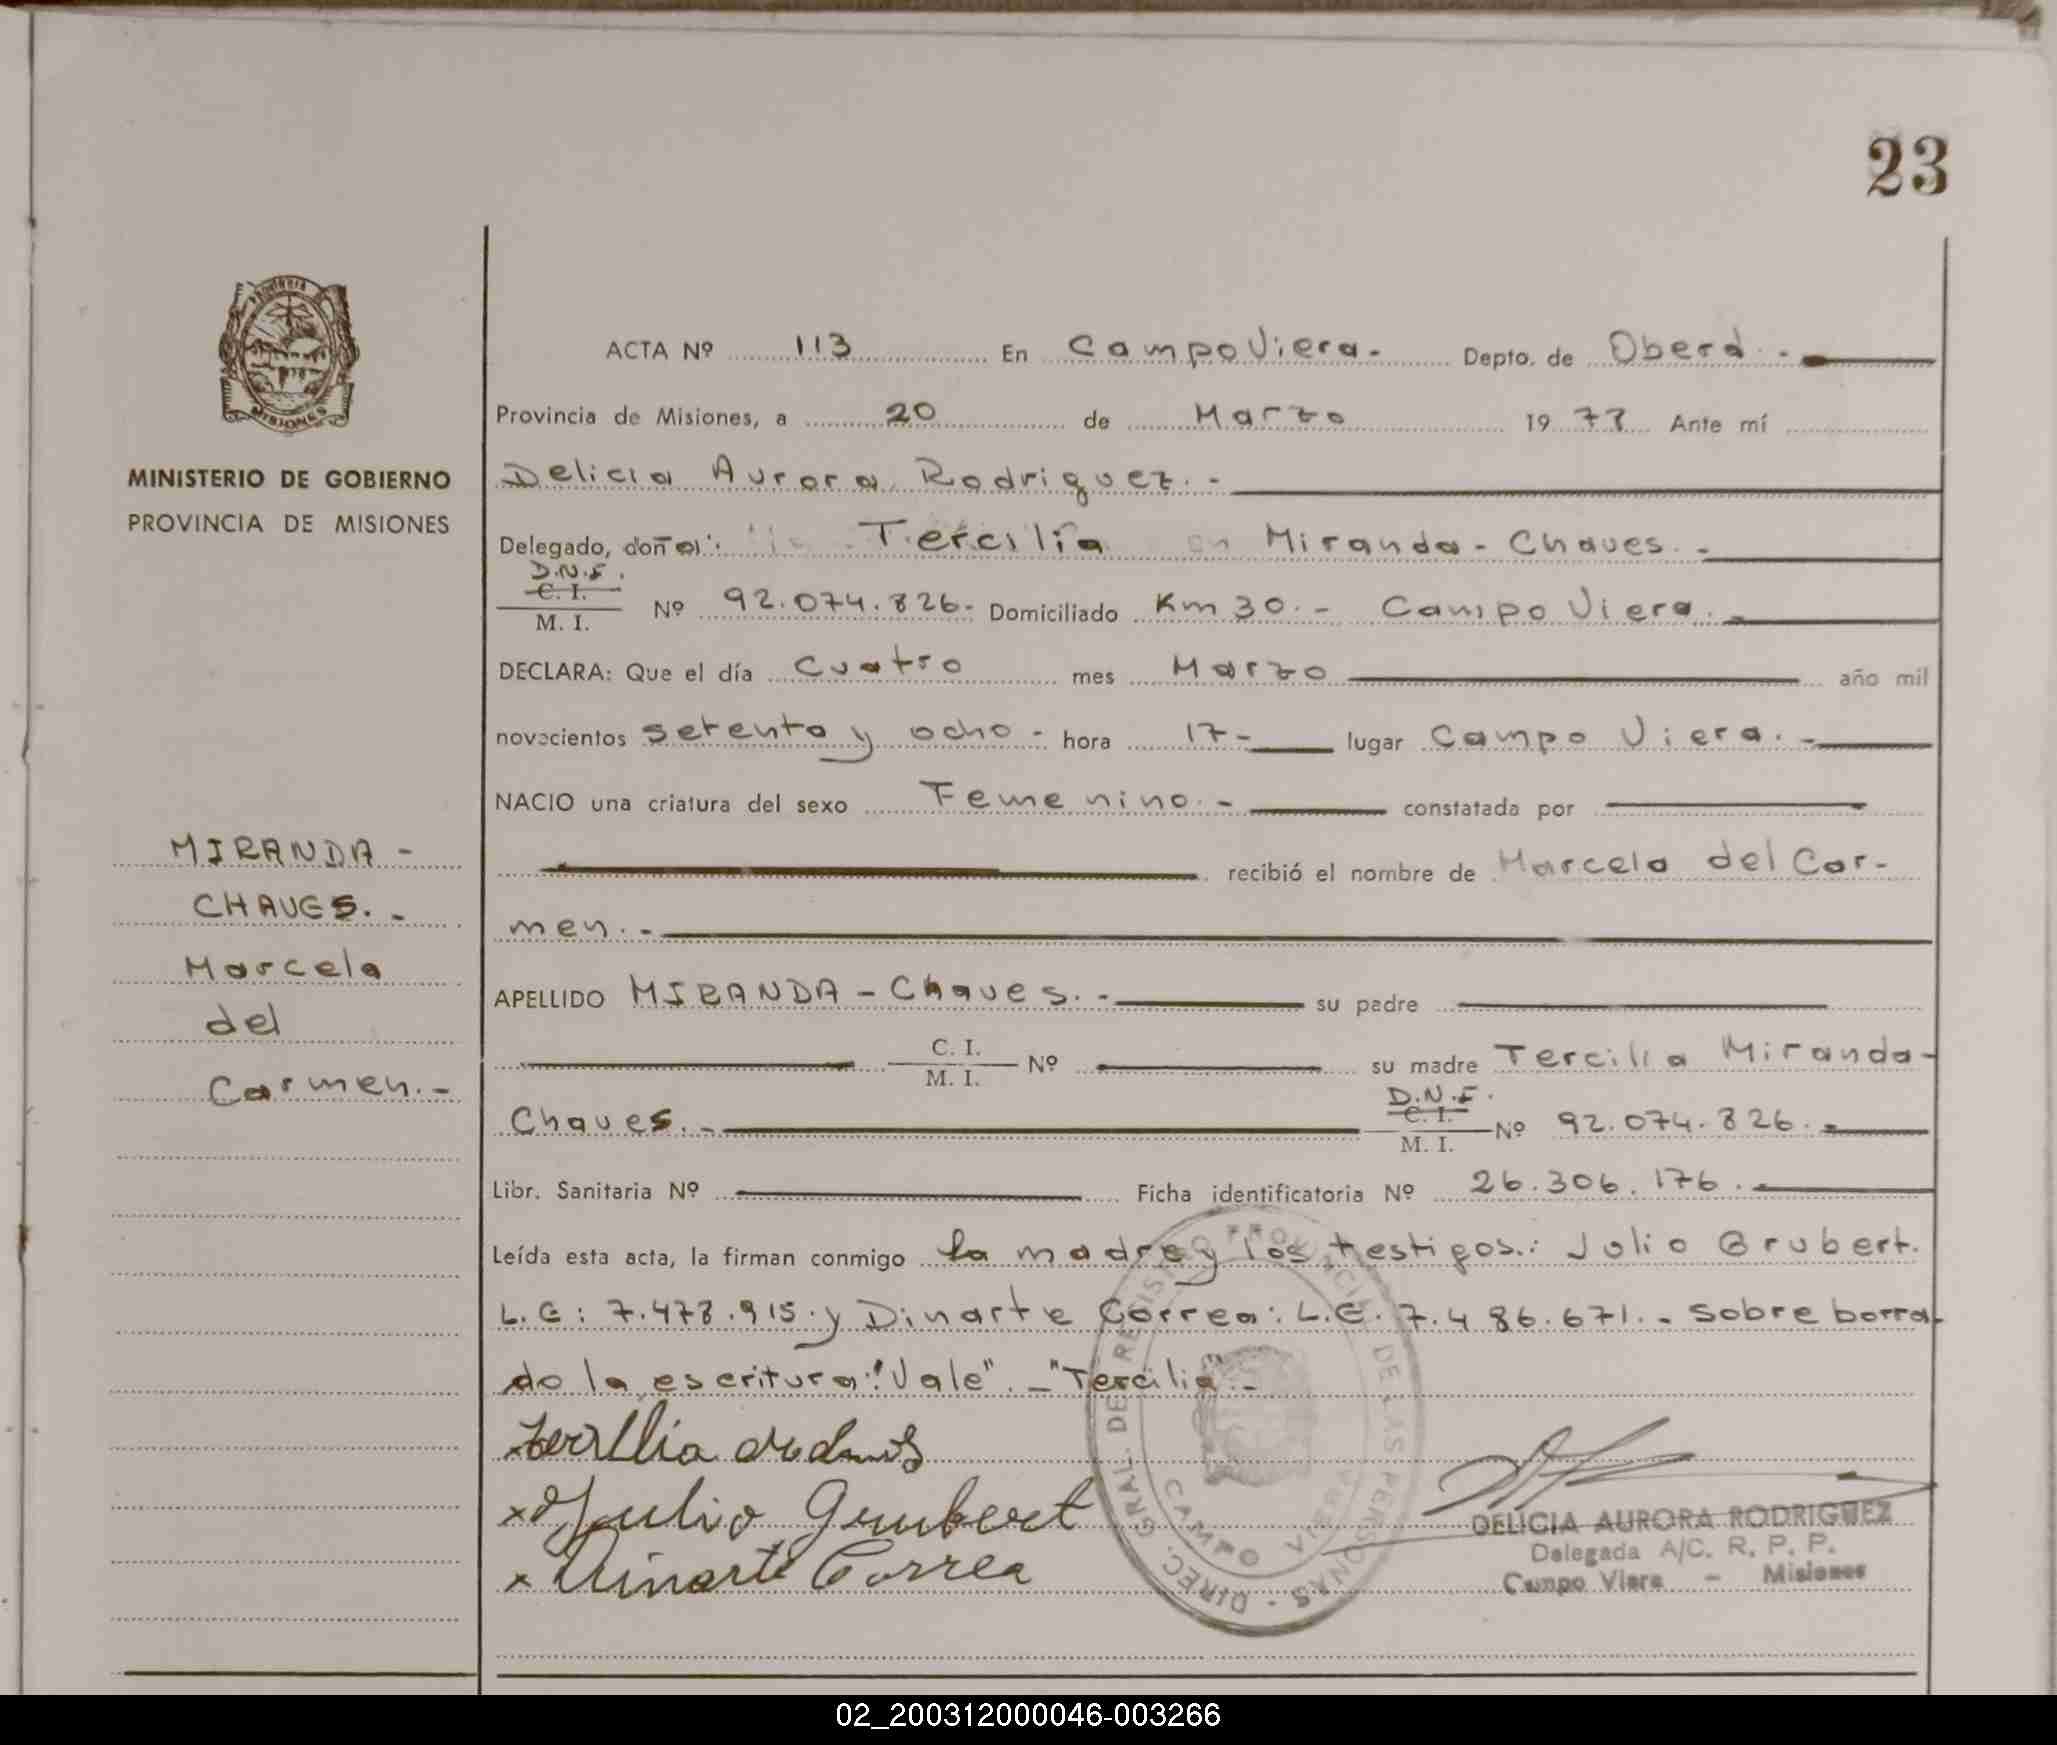 23
PROVINCIA DE MISIONES
MINISTERIO DE GOBIERNO
PROVINCIA DE MISIONES
MIRANDA -
CHAVES. -
Marcela
del
Carmen. -
ACTA Nº 113 En Campo Viera. - Depto. de Oberá. -
Provincia de Misiones, a 20 de Marzo 1978 Ante mí
Delicia Aurora Rodriguez. -
Delegado, doña: Tercilia Miranda - Chaves. -
D.N.I.
C. I.
M. I. Nº 92.074.826. Domiciliado Km 30. - Campo Viera. -
DECLARA: Que el día Cuatro mes Marzo año mil
novecientos setenta y ocho - hora 17 - lugar Campo Viera. -
NACIO una criatura del sexo Femenino. - constatada por
recibió el nombre de Marcela del Car-
men. -
APELLIDO MIRANDA - Chaves. - su padre
C. I.
M. I. Nº su madre Tercilia Miranda -
Chaves. -
D.N.I.
C. I.
M. I. Nº 92.074.826. -
Libr. Sanitaria Nº Ficha identificatoria Nº 26.306.176. -
Leída esta acta, la firman conmigo la madre y los testigos.: Julio Grubert.
L.E: 7.478.915. y Dinarte Correa: L.E. 7.486.671. - sobre borra-
do la escritura: "Vale". - "Tercilia". -
x Julio Grubert
x Dinarte Correa
DIREC. GRAL. DE REGISTRO PROVINCIAL DE LAS PERSONAS -
CAMPO VIERA
DELICIA AURORA RODRIGUEZ
Delegada A/C. R. P. P.
Campo Viera - Misiones
02_200312000046-003266